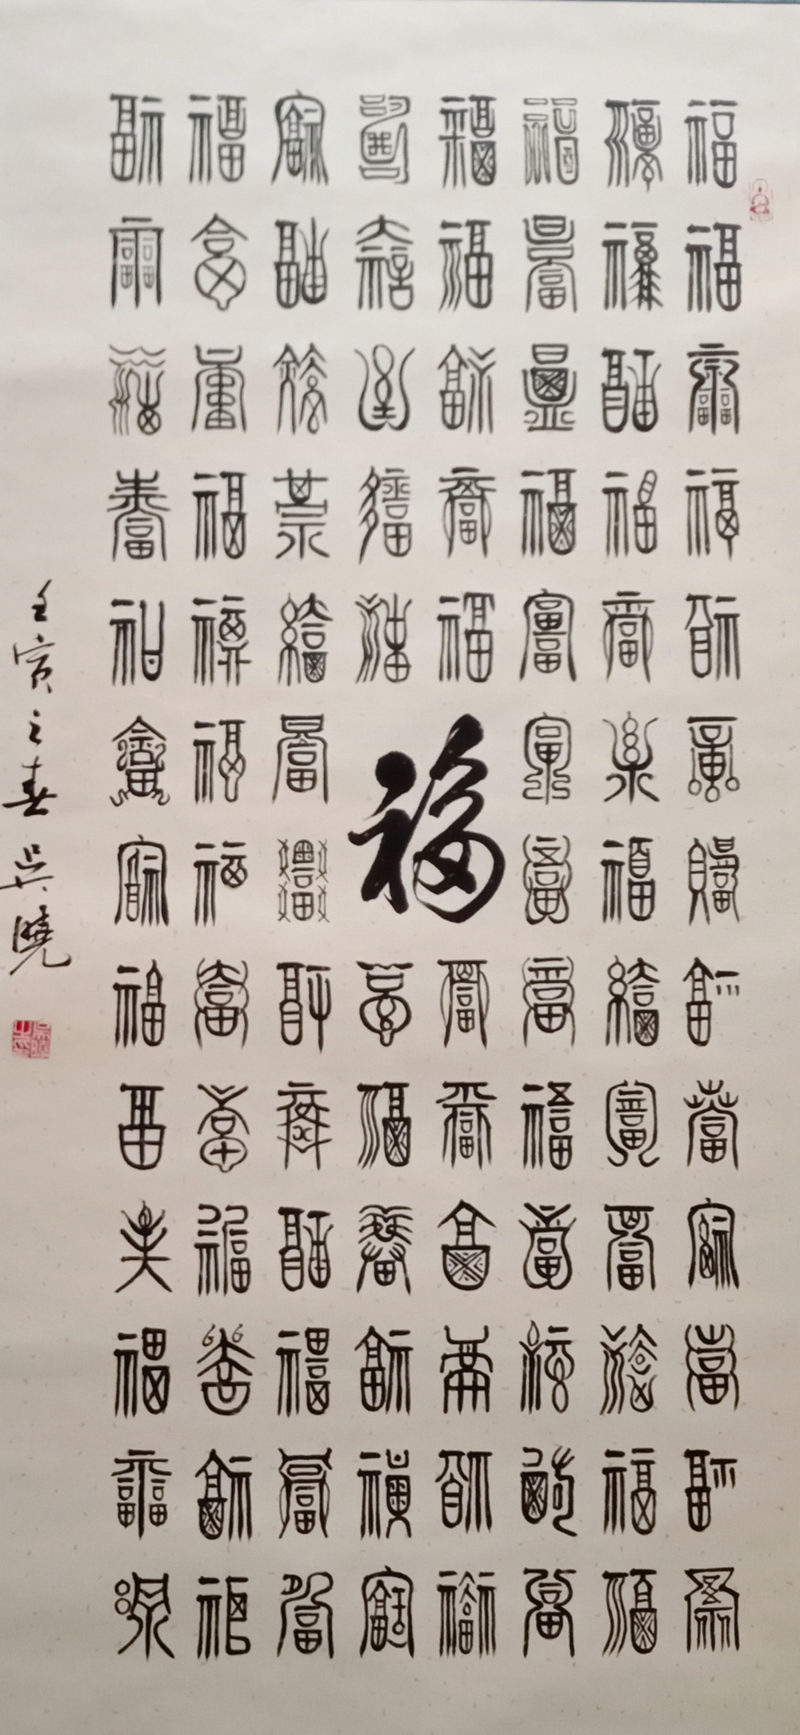 福福福福福福福福福福福福福
福福福福福福福福福福福福福
福福福福福福福福福福福福福
福福福福福
福福福福福福
福
福福福福福
福福福福福福
福福福福福福福福福福福福福
福福福福福福福福福福福福福
福福福福福福福福福福福福福
壬寅之春吴曉